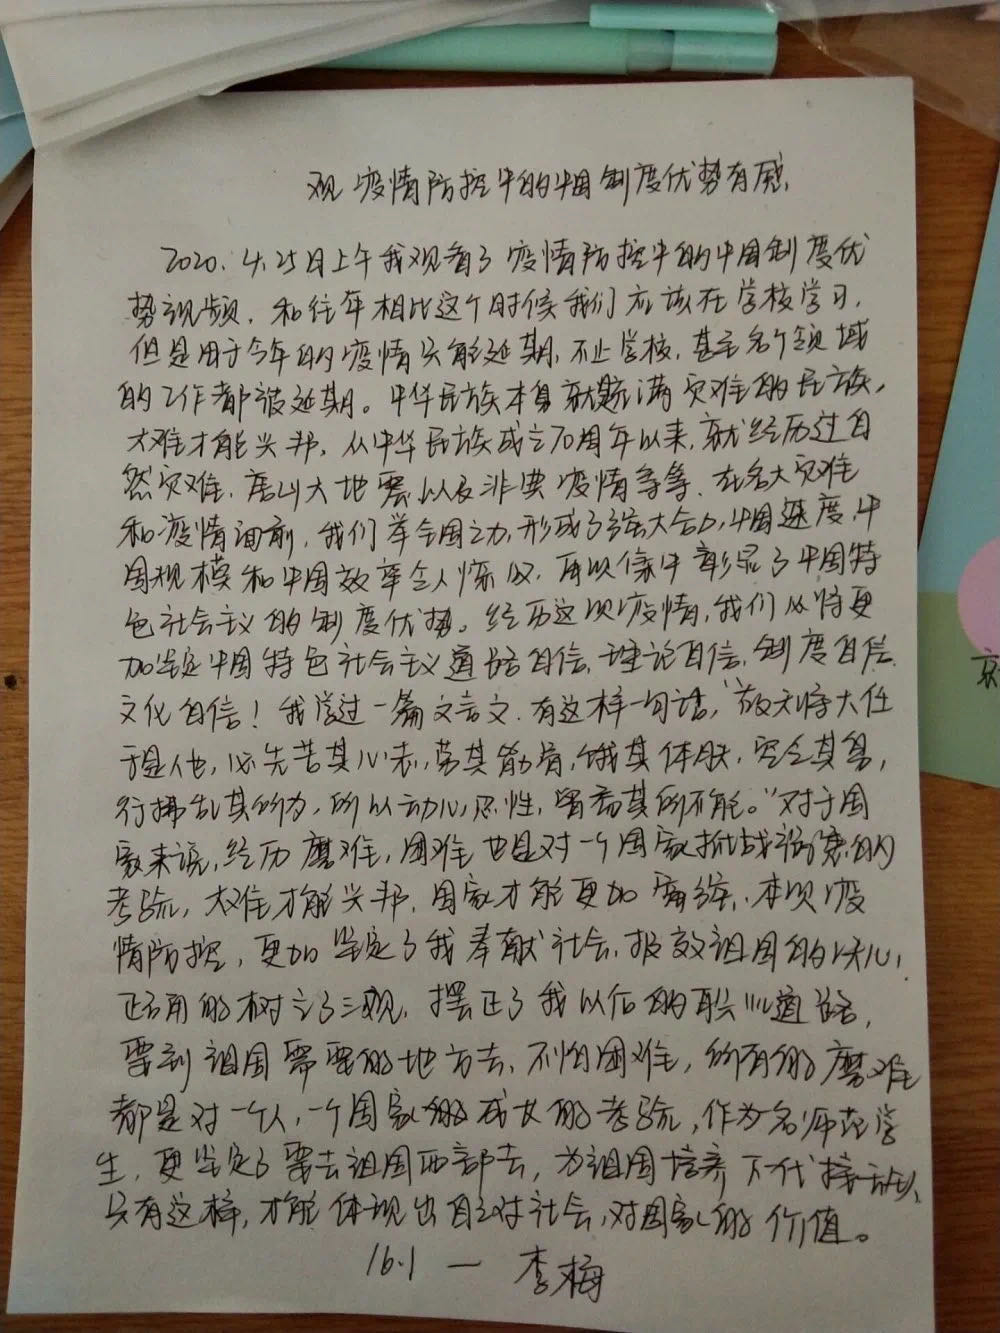 观疫情防控中的中国制度优势有感
2020.4.25日上午我观看了疫情防控中的中国制度优
势视频，和往年相比这个时候我们应该在学校学习，
但是由于今年的疫情只能延期，不止学校，甚至各个领域
的工作都被延期。中华民族本身就是满灾难的民族，
大难才能兴邦，从中华民族成立70周年以来，就经历过自
然灾难，唐山大地震以及非典疫情等等，在各大灾难
和疫情面前，我们举全国之力，形成了强大合力，中国速度，中
国规模和中国效率令人惊叹，再以条件彰显了中国特
色社会主义的制度优势。经历这次疫情，我们必将更
加坚定中国特色社会主义道路自信，理论自信，制度自信
文化自信！我学过一篇文言文，有这样一句话，“故天将大任
于是人也，必先苦其心志，劳其筋骨，饿其体肤，空乏其身，
行拂乱其所为，所以动心忍性，曾益其所不能。”对于国
家来说，经历磨难，困难也是对一个国家抗战的
考验，大难才能兴邦，国家才能更加，本次疫
情防控，更加坚定了我奉献社会，报效祖国的决心，
正确的树立了三观，摆正了我以后的职业道路，
要到祖国需要的地方去，不怕困难，所有的磨难
都是对一个人，一个国家的成长的考验，作为名师范学
生，更坚定了要去祖国西部去，为祖国培养下一代接班人，
只有这样，才能体现出自己对社会，对国家的价值。
16.1 — 李梅
京